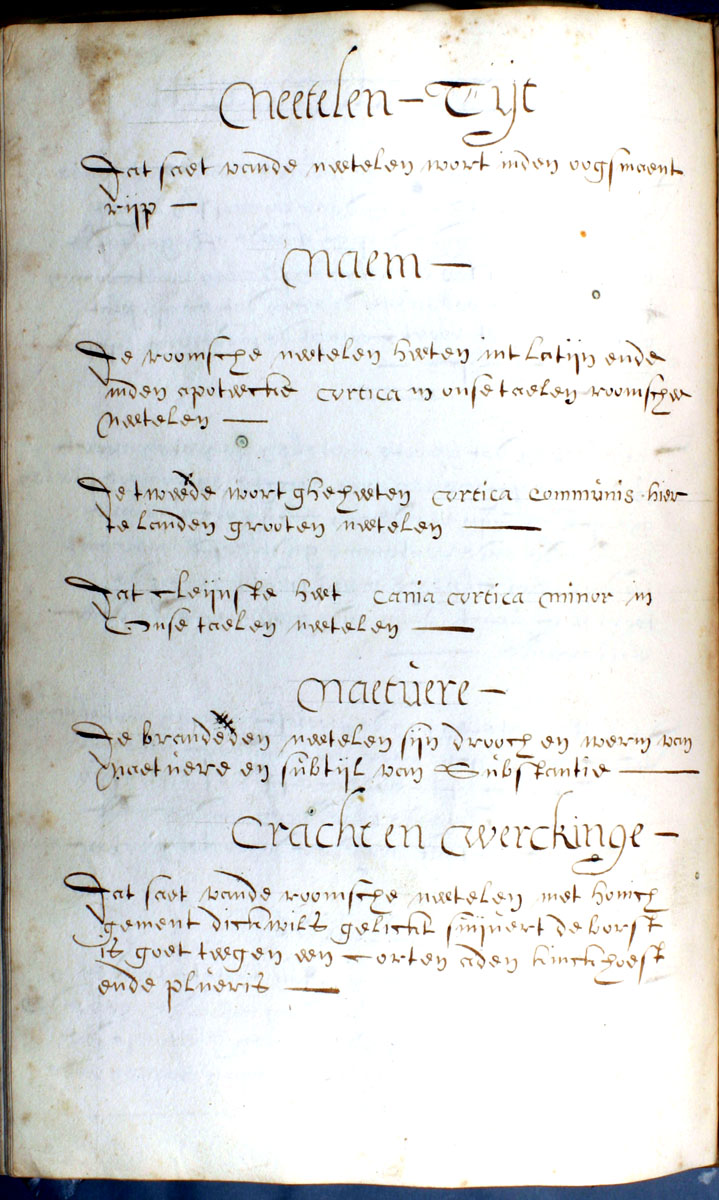 Neetelen – Tijt
Dat saet vande neetelen wort inden oogsmaent
rijp –
Naem –
De roomsche neetelen heeten int latijn ende
inden apoteecke Vrtica in onse taelen roomsche
neetelen –
De tweede wort gheheeten Vrtica Commŭnis hier
te landen grooten neetelen –
Dat cleijnste heet Cania Vrtica minor in
Onse taelen neetelen –
Naetŭere –
De brandeden neetelen sijn drooch en werm van
Naetŭere en sŭbtijl van Sŭbstantie –
Cracht en Werckinge –
Dat saet vande roomsche neetelen met honich
gement dickwils gelickt sŭijvert de borst
is goet teegen een corten aden kinckhoest
ende plŭeris –